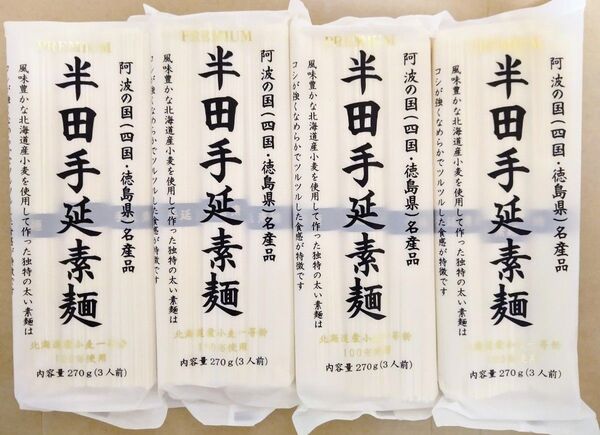 PREMIUM
阿波の国(四国・徳島県)名産品
半田手延素麺
風味豊かな北海道産小麦を使用して作った独特の太い素麺は
コシが強くなめらかでツルツルした食感が特徴です
北海道産小麦一等粉
100%使用
内容量 270g(3人前)
PREMIUM
阿波の国(四国・徳島県)名産品
半田手延素麺
風味豊かな北海道産小麦を使用して作った独特の太い素麺は
コシが強くなめらかでツルツルした食感が特徴です
北海道産小麦一等粉
100%使用
内容量 270g(3人前)
PREMIUM
阿波の国(四国・徳島県)名産品
半田手延素麺
風味豊かな北海道産小麦を使用して作った独特の太い素麺は
コシが強くなめらかでツルツルした食感が特徴です
北海道産小麦一等粉
100%使用
内容量 270g(3人前)
PREMIUM
阿波の国(四国・徳島県)名産品
半田手延素麺
風味豊かな北海道産小麦を使用して作った独特の太い素麺は
コシが強くなめらかでツルツルした食感が特徴です
内容量 270g(3人前)